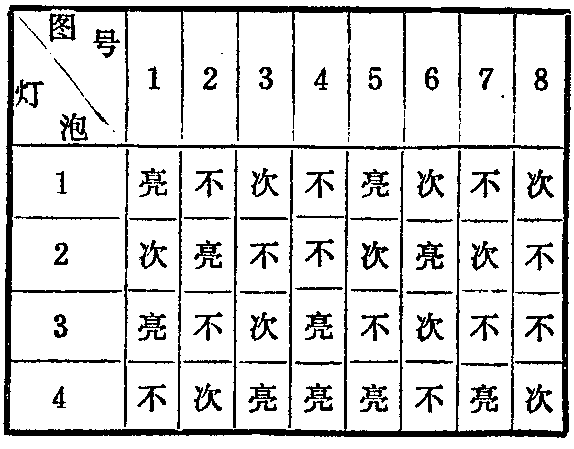 图号
灯泡
1 2 3 4 5 6 7 8
1 亮 不 次 不 亮 次 不 次
2 次 亮 不 不 次 亮 次 不
3 亮 不 次 亮 不 次 不 不
4 不 次 亮 亮 亮 不 亮 次